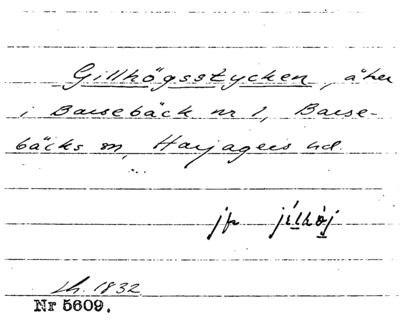 Gillhögsstycken, åker
i Barsebäck nr 1, Barse-
bäcks sn, Harjagers hd.
jfr jilhøj
lh. 1832
Nr 5609.